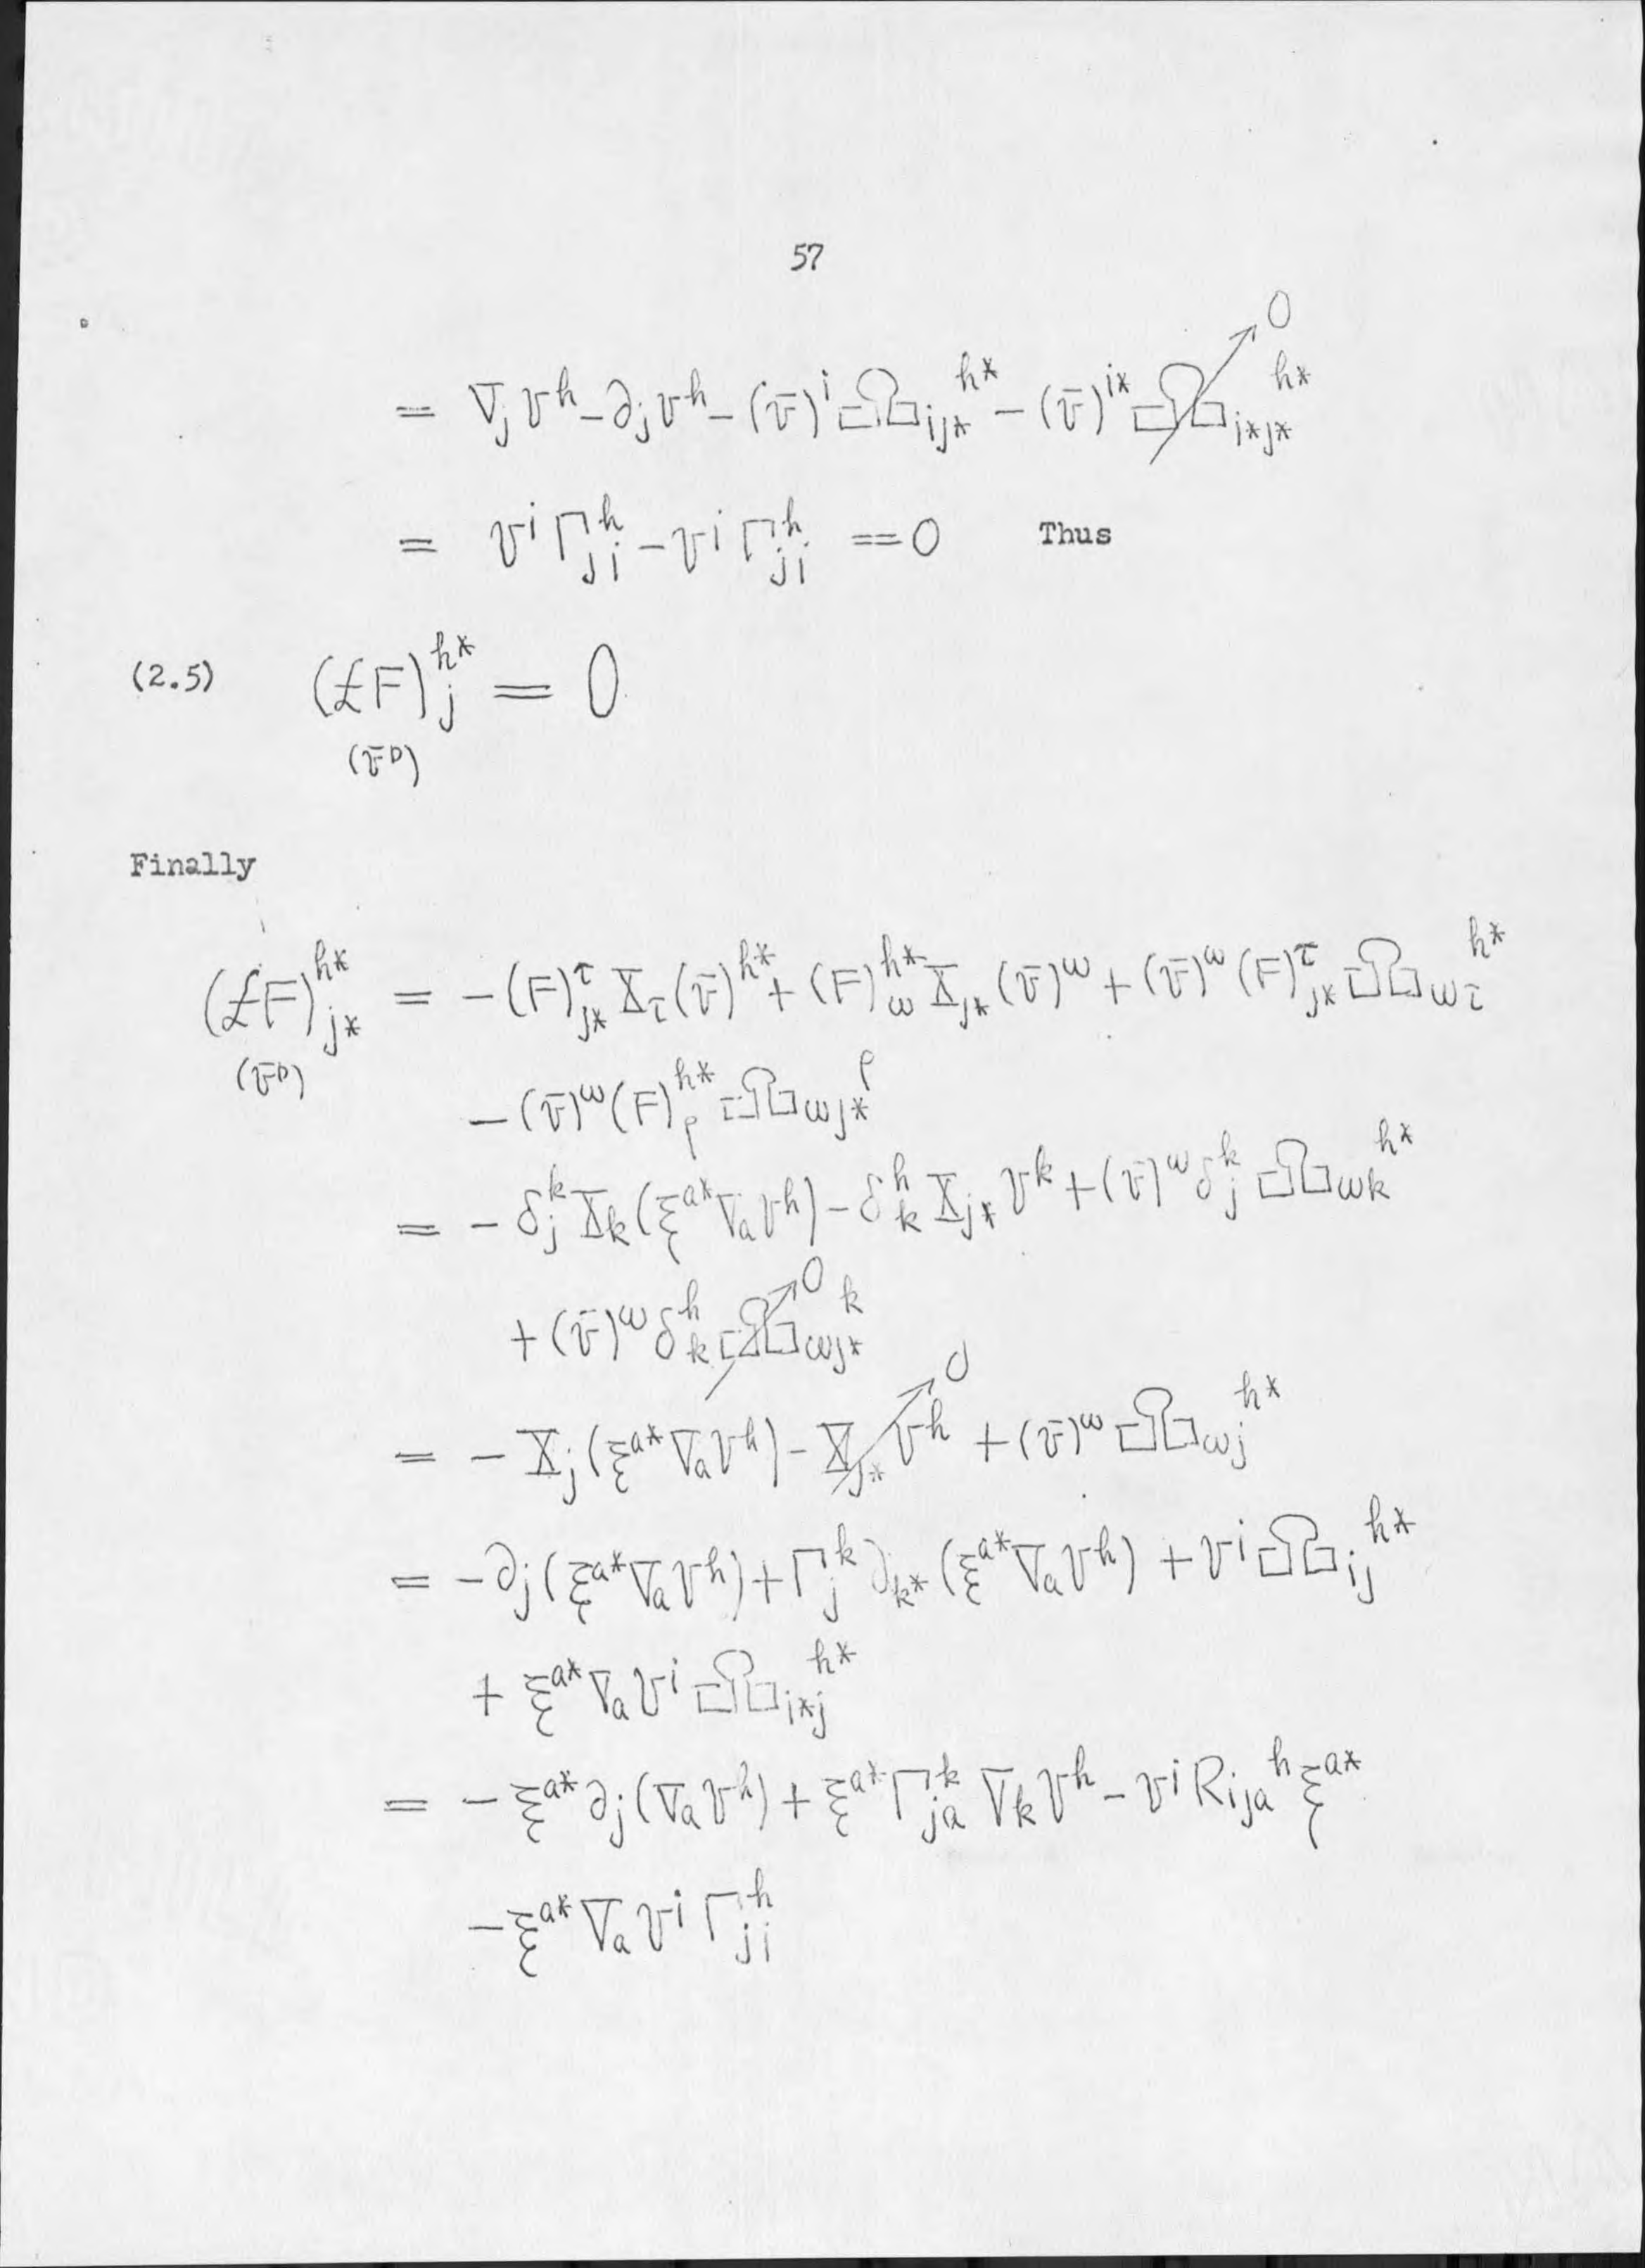 57
= ∇_j v^h - ∂_j v^h - (v̄)^i Ω_{ij*}^{h*} - (v̄)^{i*} Ω_{i*j*}^{h*} ↗ 0
= v^i Γ_{ji}^h - v^i Γ_{ji}^h == 0 Thus
(2.5) (£F)_j^{h*} = 0
(v̄^D)
Finally
(£F)_{j*}^{h*} = -(F)_{j*}^τ X_τ (v̄)^{h*} + (F)_ω^{h*} X_{j*} (v̄)^ω + (v̄)^ω (F)_{j*}^τ Ω_{ωτ}^{h*}
(v̄^D)
- (v̄)^ω (F)_ρ^{h*} Ω_{ωj*}^ρ
= - δ_j^k X_k (ξ^{a*} ∇_a v^h) - δ_k^h X_{j*} v^k + (v̄)^ω δ_j^k Ω_{ωk}^{h*}
+ (v̄)^ω δ_k^h Ω_{ωj*}^k ↗ 0
= - X_j (ξ^{a*} ∇_a v^h) - X_{j*} v^h ↗ 0 + (v̄)^ω Ω_{ωj}^{h*}
= -∂_j (ξ^{a*} ∇_a v^h) + Γ_j^k ∂_{k*} (ξ^{a*} ∇_a v^h) + v^i Ω_{ij}^{h*}
+ ξ^{a*} ∇_a v^i Ω_{i*j}^{h*}
= - ξ^{a*} ∂_j (∇_a v^h) + ξ^{a*} Γ_{ja}^k ∇_k v^h - v^i R_{ija}^h ξ^{a*}
- ξ^{a*} ∇_a v^i Γ_{ji}^h